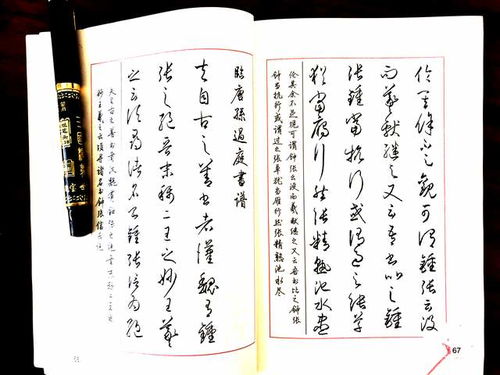 臨唐孫過庭書譜
夫自古之善書者漢魏有鍾
張之絕晉末稱二王之妙王羲
之云頃尋諸名書鍾張信為絕
夫自古之善書者漢魏有鍾張之絕晉末稱二王之
妙王羲之云頃尋諸名書鍾張信為絕
倫其餘不足觀可謂鍾張云沒
而羲獻繼之又云吾書比之鍾
張鍾當抗行或謂過之張草
猶當雁行然張精熟池水盡
倫其餘不足觀可謂鍾張云沒而羲獻繼之又云吾書比之鍾張
鍾當抗行或謂過之張草猶當雁行然張精熟池水盡
67